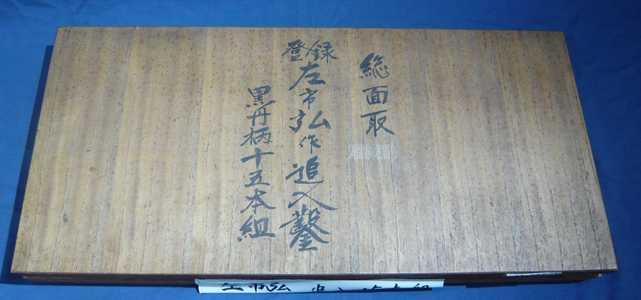 総面取
登録
左市弘作追入鑿
黒丹柄十五本組